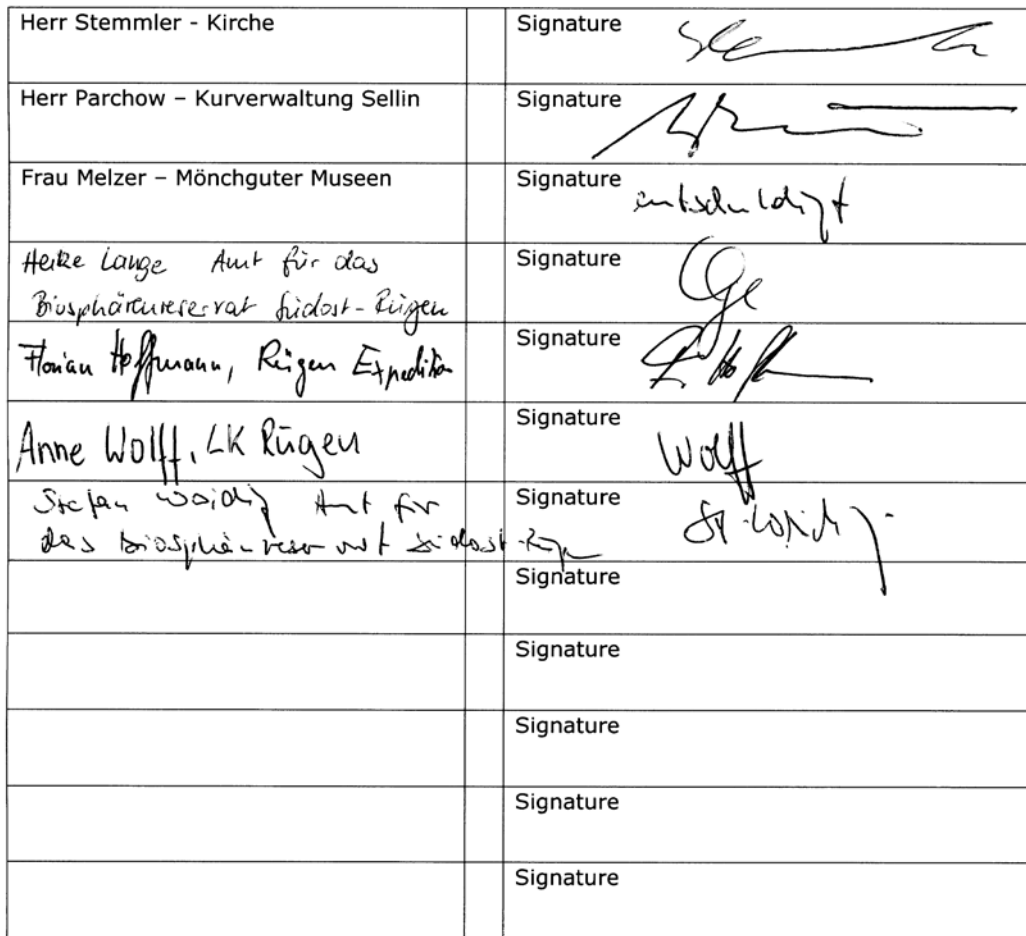 Herr Stemmler - Kirche Signature
Herr Parchow – Kurverwaltung Sellin Signature
Frau Melzer – Mönchguter Museen Signature entschuldigt
Heike Lange Amt für das Signature
Biosphärenreservat Südost-Rügen
Florian Hoffmann, Rügen Expedition Signature
Anne Wolff, LK Rügen Signature Wolff
Stefan Woidig Amt für Signature St. Woidig
das Biosphärenreservat Südost-Rügen
Signature
Signature
Signature
Signature
Signature